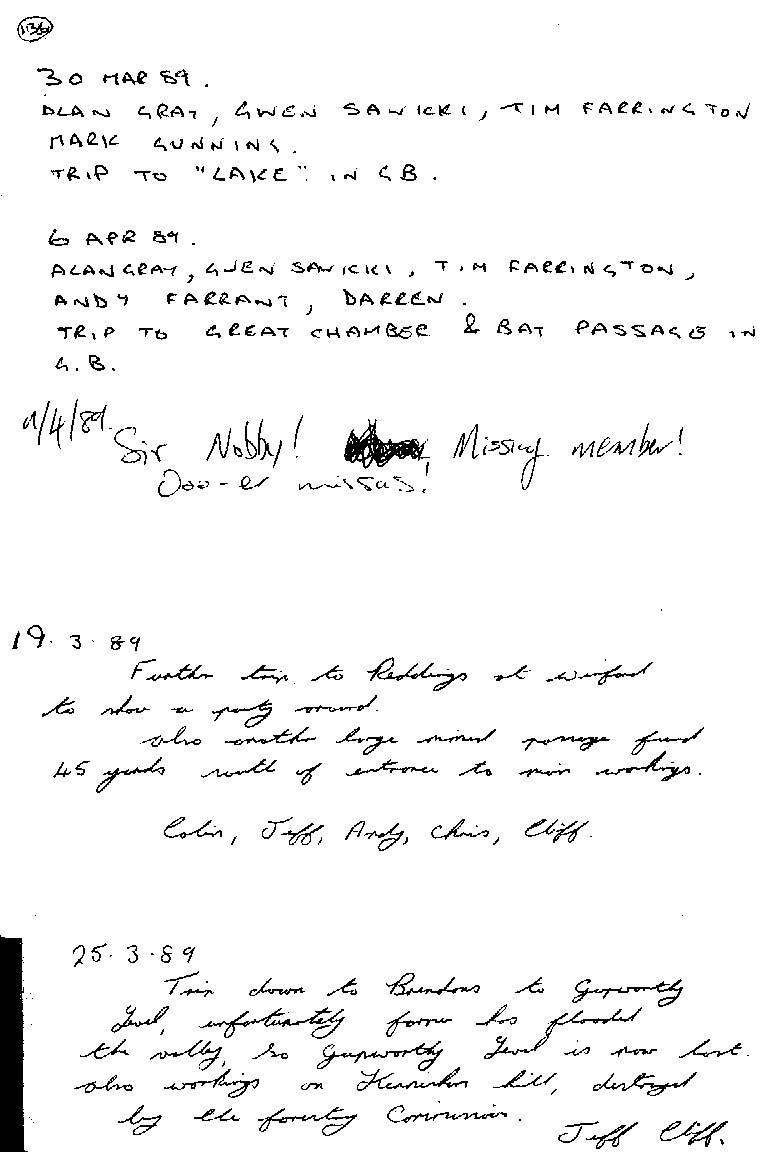 136
30 MAR 89.
ALAN GRAY, GWEN SAWICKI, TIM FARRINGTON
MARK GUNNING.
TRIP TO "LAKE" IN GB.
6 APR 89.
ALAN GRAY, GWEN SAWICKI, TIM FARRINGTON,
ANDY FARRANT, DARREN.
TRIP TO GREAT CHAMBER & BAT PASSAGE IN
G.B.
/4/89.
Sir Nobby! Missing member!
Ooo-er missus!
19.3.89
Further trip to Reddings at Winford
to show a party around.
also another large mined passage found
45 yards south of entrance to main workings.
Colin, Jeff, Andy, Chris, Cliff.
25.3.89
Trip down to Brendons to Gupworthy
Level, unfortunately farmer has flooded
the valley, so Gupworthy Level is now lost.
also workings on hill, destroyed
by the forestry Commission.
Jeff Cliff.